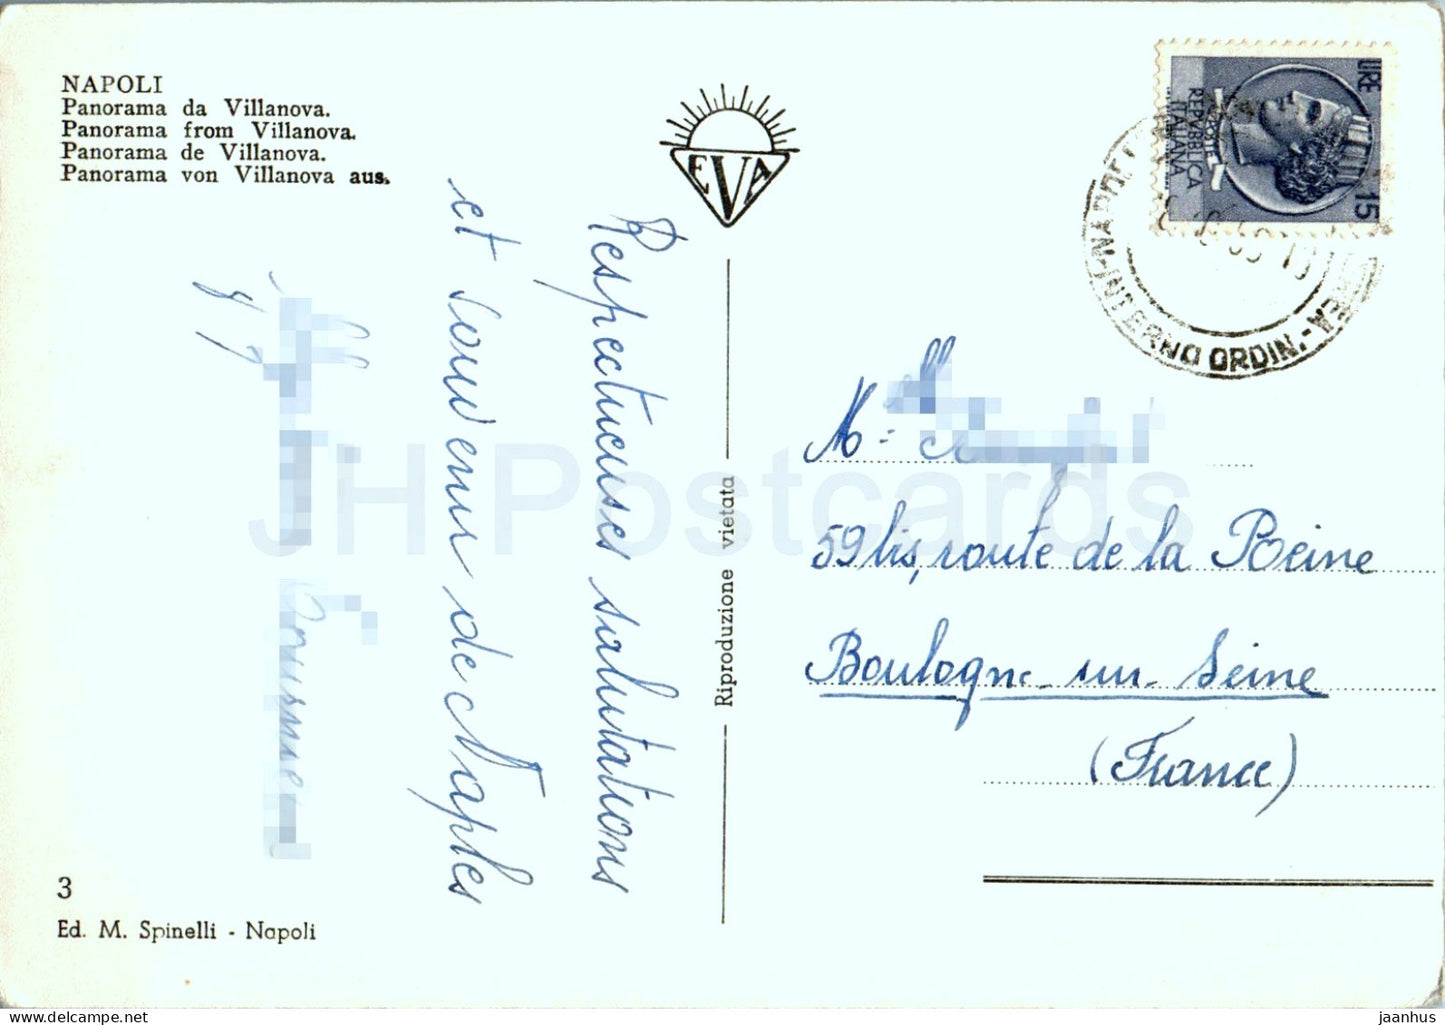 NAPOLI
Panorama da Villanova.
Panorama from Villanova.
Panorama de Villanova.
Panorama von Villanova aus.
EVA
Respectueuses salutations
et souvenir de Naples
Riproduzione vietata
LIRE 15
REPVBBLICA
ITALIANA
POSTE
INTERNO ORDIN.
59 bis, route de la Reine
Boulogne-sur-Seine
(France)
3
Ed. M. Spinelli - Napoli
JH Postcards
jaanhus